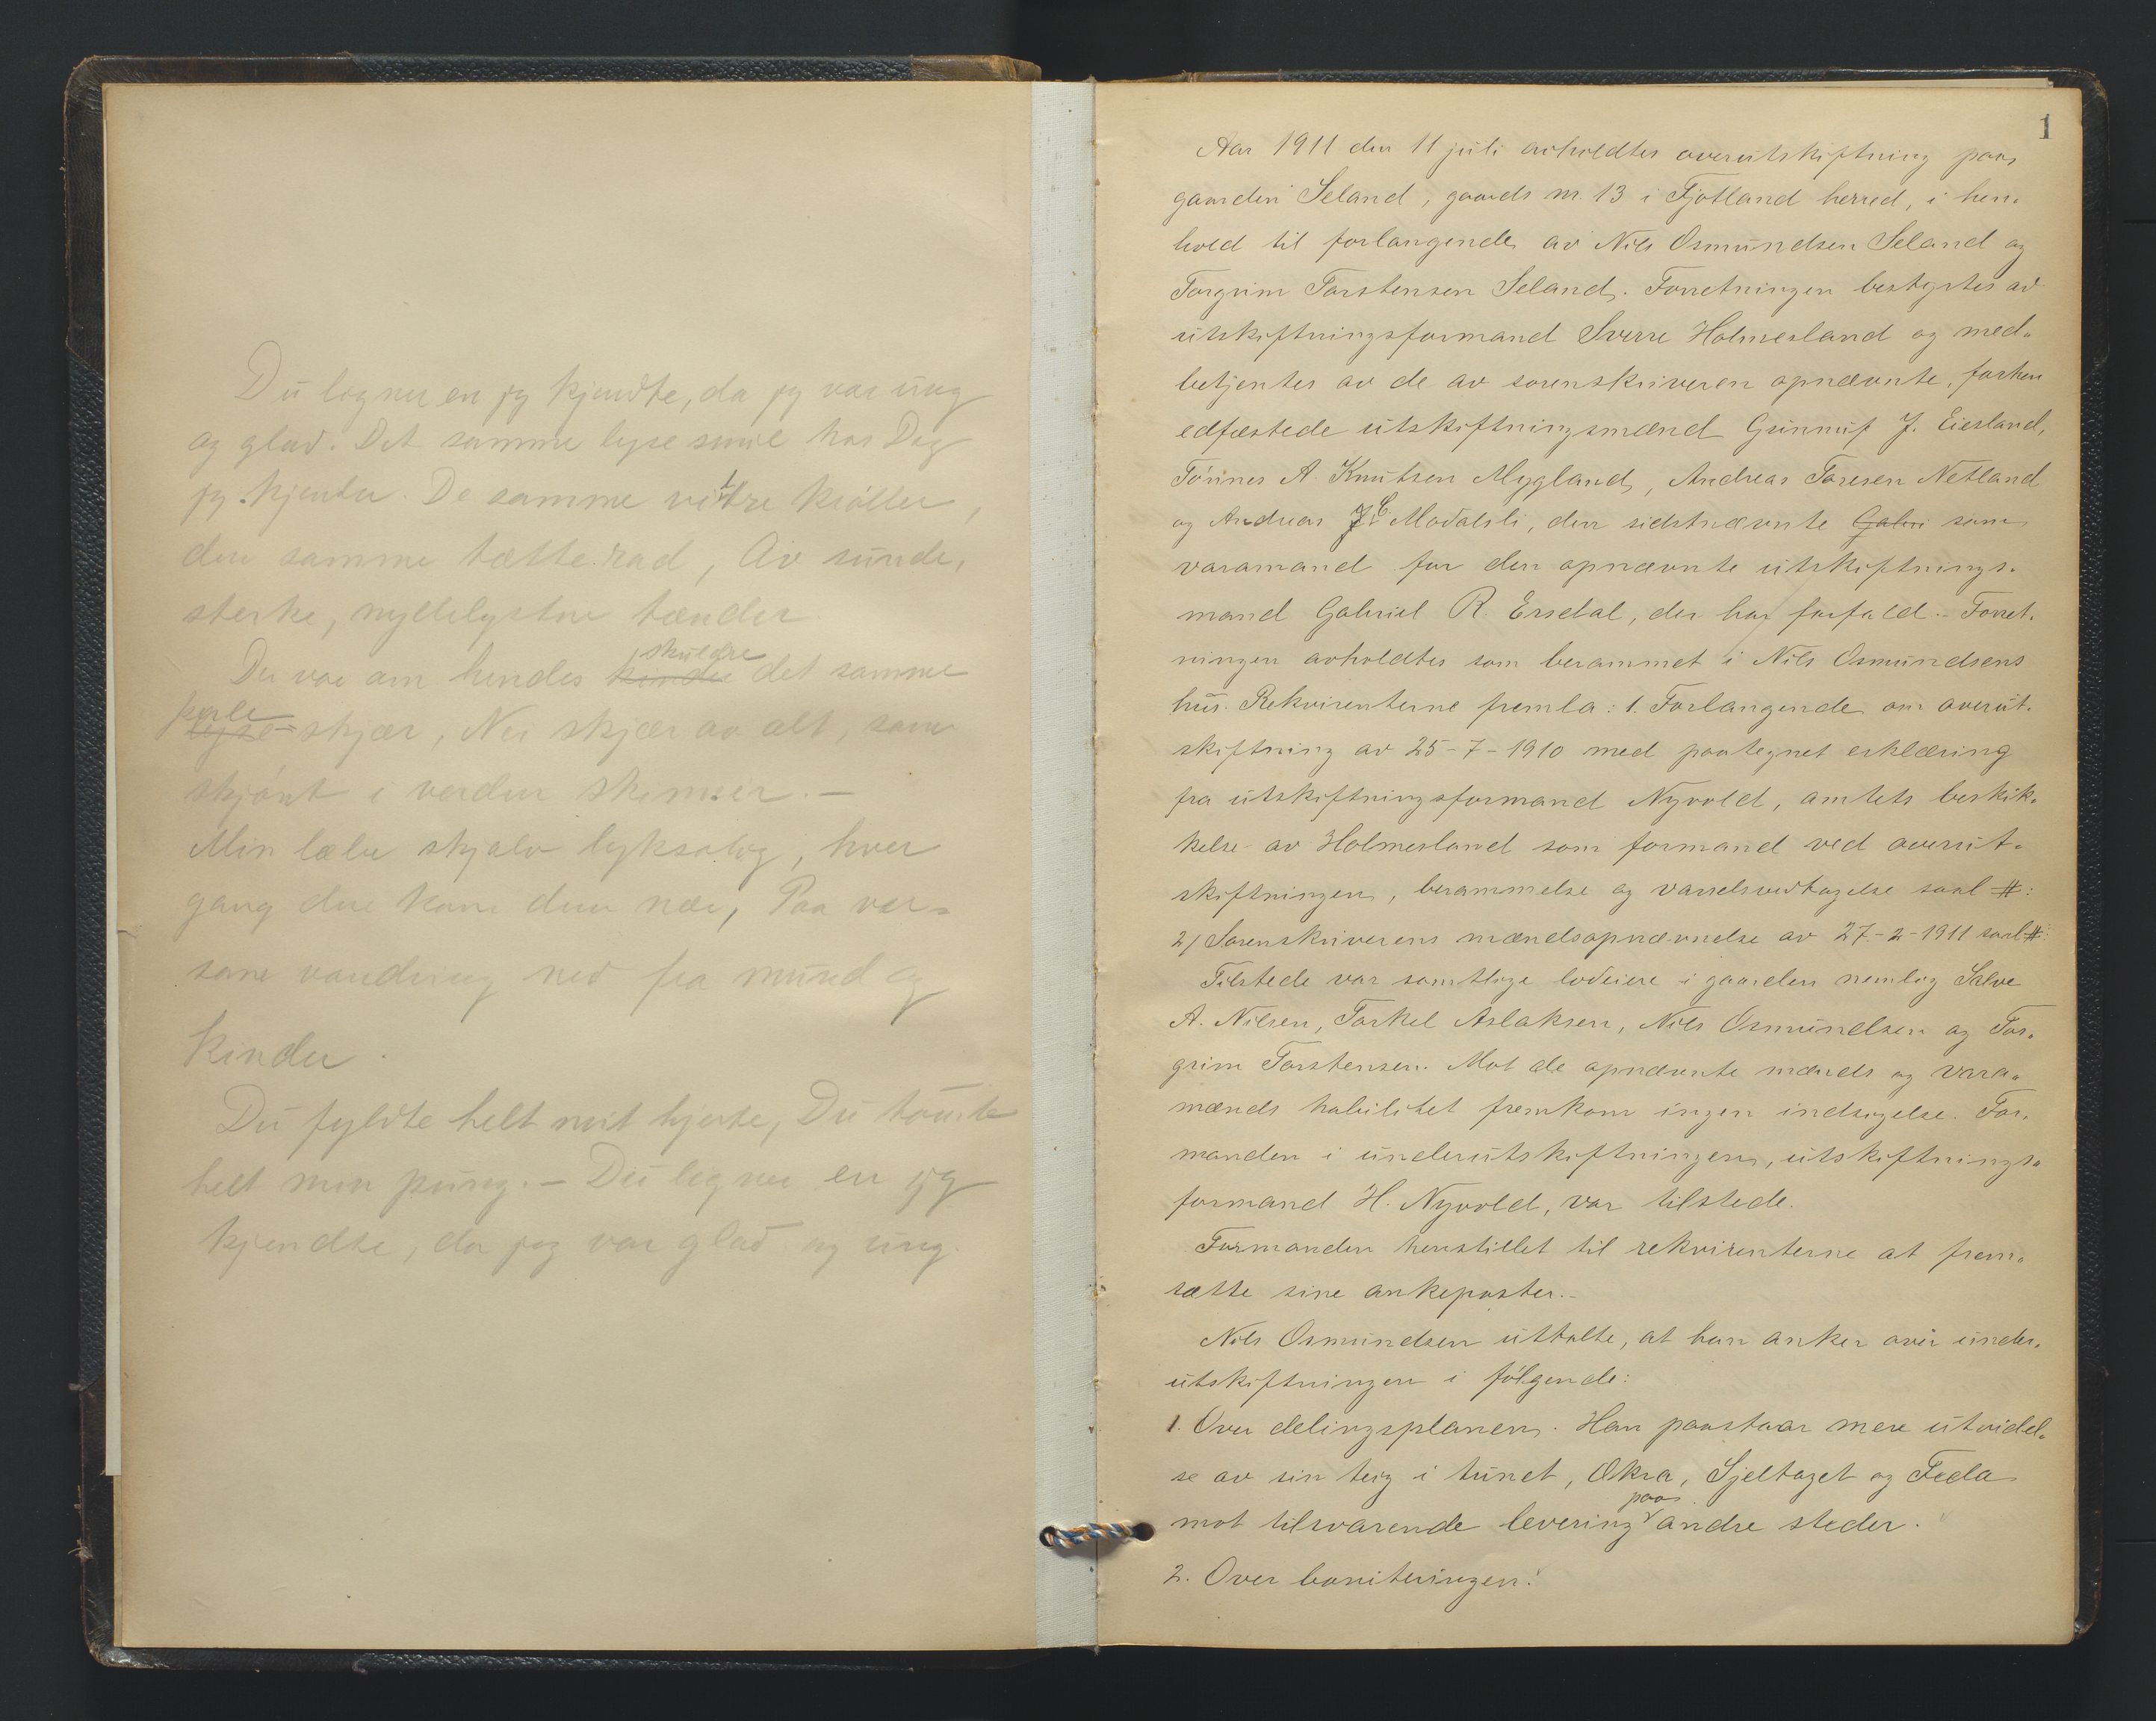 Du ligner en jeg kjendte, da jeg var ung
og glad. Det samme lyse smil hos Dig
jeg kjender. De samme vittre krøller,
den samme tætte rad, Av sunde,
sterke, nydelystne tænder.
Der var om hendes kinder skuldre det samme
lyse- perle skjær, Nei skjær av alt, som
skjønt i verden skinner. —
Min læbe skjalv lyksalig, hver
gang den kom dem nær, Paa var-
som vandring ned fra mund og
kinder.
Du fyldte helt mit hjerte, Du tømte
helt min pung. — Du ligner en jeg
kjendte, da jeg var glad og ung.
1
Aar 1911 den 11 juli avholdtes overutskiftning paa
gaarden Seland, gaards nr. 13 i Fjotland herred, i hen-
hold til forlangende av Nils Osmundsen Seland og
Torgrim Torstensen Seland. Forretningen bestyrtes av
utskiftningsformand Sverre Holmesland og med-
betjentes av de av sorenskriveren opnævnte, forhen
edfæstede utskiftningsmænd Gunnuf J. Eiesland,
Tönnes A. Knutsen Mygland, Andreas Toresen Netland
og Andreas E. Modalsli, den sidstnævnte Gabri som
varamand for den opnævnte utskiftnings-
mand Gabriel R. Ersdal, der har forfald. - Forret-
ningen avholdtes som berammet i Nils Osmundsens
hus. Rekvirenterne fremla: 1. Forlangende om overut-
skiftning av 25-7-1910 med paategnet erklæring
fra utskiftningsformand Nyvold, amtets beskik-
kelse av Holmesland som formand ved overut-
skiftningen, berammelse og varselsvedtagelse saal #:
2) Sorenskriverens mændsopnævnelse av 27-2-1911 saal #:
Tilstede var samtlige lodeiere i gaarden nemlig Salve
A. Nilsen, Torkel Aslaksen, Nils Osmundsen og Tor-
grim Torstensen. Mot de opnævnte mænds og vara-
mænds habilitet fremkom ingen indsigelse. For-
manden i underutskiftningen, utskiftnings-
formand H. Nyvold, var tilstede.
Formanden henstillet til rekvirenterne at frem-
sætte sine ankeposter. -
Nils Osmundsen uttalte, at han anker over under-
utskiftningen i følgende:
1. Over delingsplanen. Han paastaar mere utvidel-
se av sin teig i tunet, Økra, Sjeltaget og Feda
mot tilsvarende levering paa andre steder.
2. Over boniteringen: